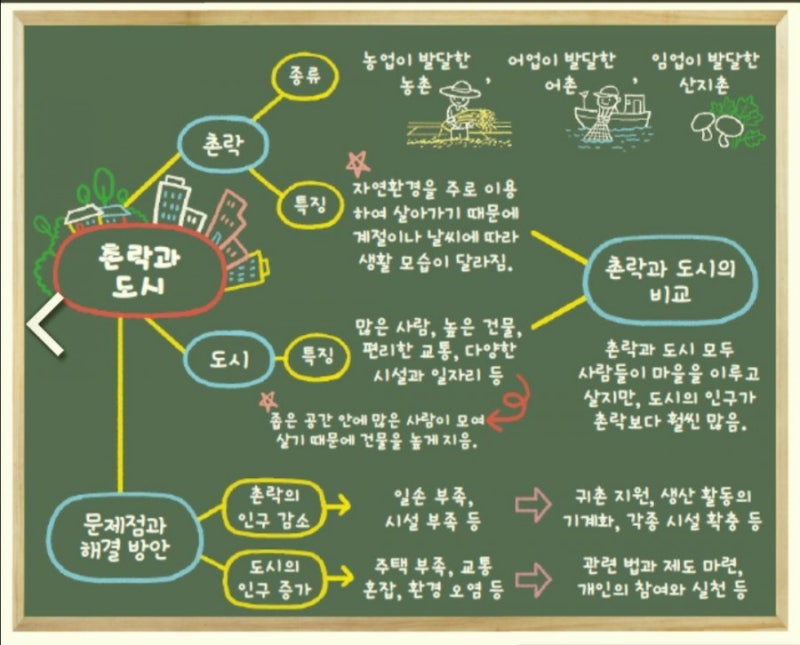 종류
농업이 발달한
농촌,
어업이 발달한
어촌,
임업이 발달한
산지촌
촌락
특징
자연환경을 주로 이용
하여 살아가기 때문에
계절이나 날씨에 따라
생활 모습이 달라짐.
촌락과
도시
촌락과 도시의
비교
촌락과 도시 모두
사람들이 마을을 이루고
살지만, 도시의 인구가
촌락보다 훨씬 많음.
도시
특징
많은 사람, 높은 건물,
편리한 교통, 다양한
시설과 일자리 등
좁은 공간 안에 많은 사람이 모여
살기 때문에 건물을 높게 지음.
문제점과
해결 방안
촌락의
인구 감소
일손 부족,
시설 부족 등
귀촌 지원, 생산 활동의
기계화, 각종 시설 확충 등
도시의
인구 증가
주택 부족, 교통
혼잡, 환경 오염 등
관련 법과 제도 마련,
개인의 참여와 실천 등